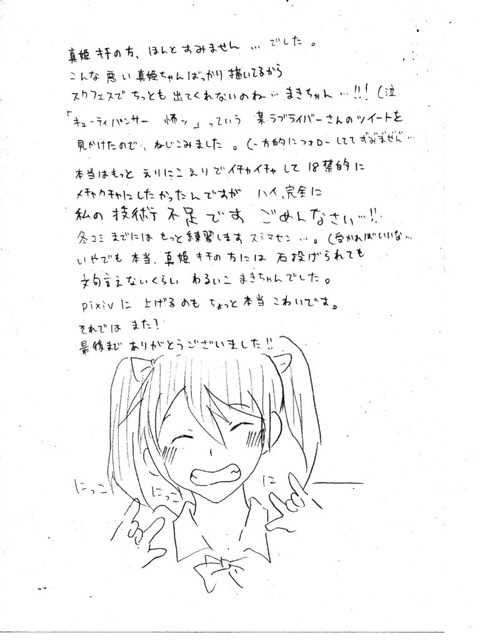 真姫 キチの方、ほんとすみません … でした 。
こんな 悪い 真姫ちゃんばっかり 描いてるから
スクフェスで ちっとも 出てくれないのね … まきちゃん …!!! (泣
「キューティパンサー 怖ッ 」っていう 某ラブライバーさんのツイートを
見かけたので、ねじこみました 。(一方的にフォローしてて すみません …
本当はもっと えりにこえりでイチャイチャ して 18禁的に
メチャクチャにしたかったんですが ハイ、完全に
私の 技術不足です ごめんなさい…!!
冬コミ までには もっと練習します スミマセン … 。(受かればいいな…
いやでも 本当、真姫 キチの方には 石投げられても
文句言えないくらい わるいこ まきちゃんでした 。
pixivに 上げるのも ちょっと本当 こわいです 。
それでは また!
最後まで ありがとうございました!!
にっこ
にっこ
に